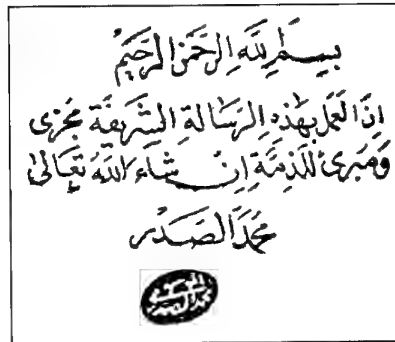 بِسْمِ اللّٰهِ الرَّحْمٰنِ الرَّحِيْمِ
اِنَّ الْعَمَلَ بِهٰذِهِ الرِّسَالَةِ الشَّرِيفَةِ مُجْزِى
وَمُبْرِئٌ لِلذِّمَّةِ اِنْ شَاءَ اللّٰهُ تَعَالٰى
مُحَمَّد الصَّدْر